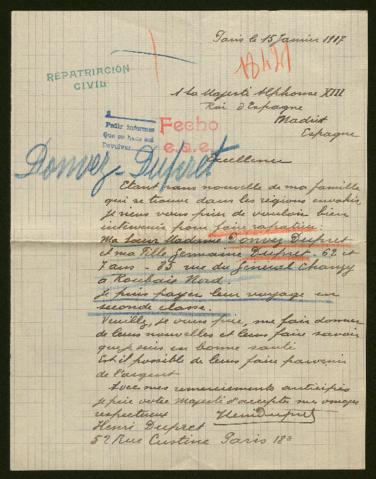 Paris le 15 Janvier 1917
18421
REPATRIACIÓN
CIVIL
A La Majesté Alphonse XIII
Roi d'Espagne
Madrid
Espagne
Pedir informes
Que se haga así
Fecho
e.s.e.
Donvez-Dupret
Excellence
Etant sans nouvelle de ma famille
qui se trouve dans les régions envahis,
je viens vous prier de vouloir bien
intervenir pour faire rapatrier.
Ma Sœur Madame Donvez Dupret
et ma Fille Germaine Dupret - 62 et
7 ans - 83 rue du Général Chanzy
à Roubaix Nord.
Je puis payer leur voyage en
seconde classe.
Veuillez, je vous prie, me faire donner
de leurs nouvelles et leurs faire savoir
que je suis en bonne santé
Est-il possible de leurs faire parvenir
de l'argent
Avec mes remerciements anticipés
je prie votre Majesté d'accepter mes
respectueux
Henri Dupret
Henri Dupret
52 Rue Custine Paris 18e